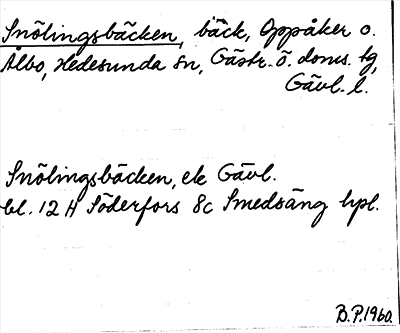 Snölingsbäcken, bäck, Oppåker o.
Ålbo, Hedesunda sn, Gästr. ö. doms. tg,
Gävl. l.
Snölingsbäcken, ek Gävl.
bl. 12 H Söderfors 8c Smedsäng hpl.
B.P. 1960.